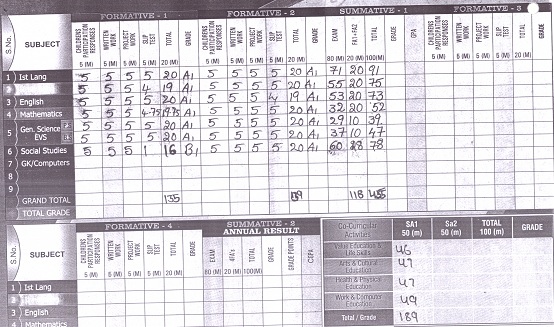 FORMATIVE - 1 FORMATIVE - 2 SUMMATIVE - 1 FORMATIVE - 3
S.No. SUBJECT CHILDRENS PARTICIPATION RESPONSES WRITTEN WORK PROJECT WORK SLIP TEST TOTAL GRADE CHILDRENS PARTICIPATION RESPONSES WRITTEN WORK PROJECT WORK SLIP TEST TOTAL GRADE EXAM FA1+FA2 TOTAL GRADE GPA CHILDRENS PARTICIPATION RESPONSES WRITTEN WORK PROJECT WORK SLIP TEST TOTAL GRADE
5 (M) 5 (M) 5 (M) 5 (M) 20 (M) 5 (M) 5 (M) 5 (M) 5 (M) 20 (M) 80 (M) 20 (M) 100(M) 5 (M) 5 (M) 5 (M) 5 (M) 20 (M)
1 Ist Lang 5 5 5 5 20 A1 5 5 5 5 20 A1 71 20 91
5 5 5 4 19 A1 5 5 5 5 20 A1 55 20 75
3 English 5 5 5 5 20 A1 5 5 5 4 19 A1 53 20 73
4 Mathematics 5 5 5 4.75 19.75 A1 5 5 5 5 20 A1 32 20 52
5 Gen. Science 5 5 5 5 20 A1 5 5 5 5 20 A1 29 10 39
EVS 5 5 5 5 20 A1 5 5 5 5 20 A1 37 10 47
6 Social Studies 5 5 5 1 16 B1 5 5 5 5 20 A1 60 28 78
7 GK/Computers
8
9
GRAND TOTAL 135 118
TOTAL GRADE
FORMATIVE - 4 SUMMATIVE - 2
ANNUAL RESULT
S.No. SUBJECT CHILDRENS PARTICIPATION RESPONSES WRITTEN WORK PROJECT WORK SLIP TEST TOTAL GRADE EXAM 4FA's TOTAL GRADE GRADE POINTS CGPA
5 (M) 5 (M) 5 (M) 5 (M) 20 (M) 80 (M) 20 (M) 100(M)
Co-Curricular Activities SA1 50 (m) Sa2 50 (m) TOTAL 100 (m) GRADE
Value Education & Life Skills 46
Arts & Cultural Education 47
Health & Physical Education 47
Work & Computer Education 49
Total / Grade 189
1 Ist Lang
3 English
4 Mathematics